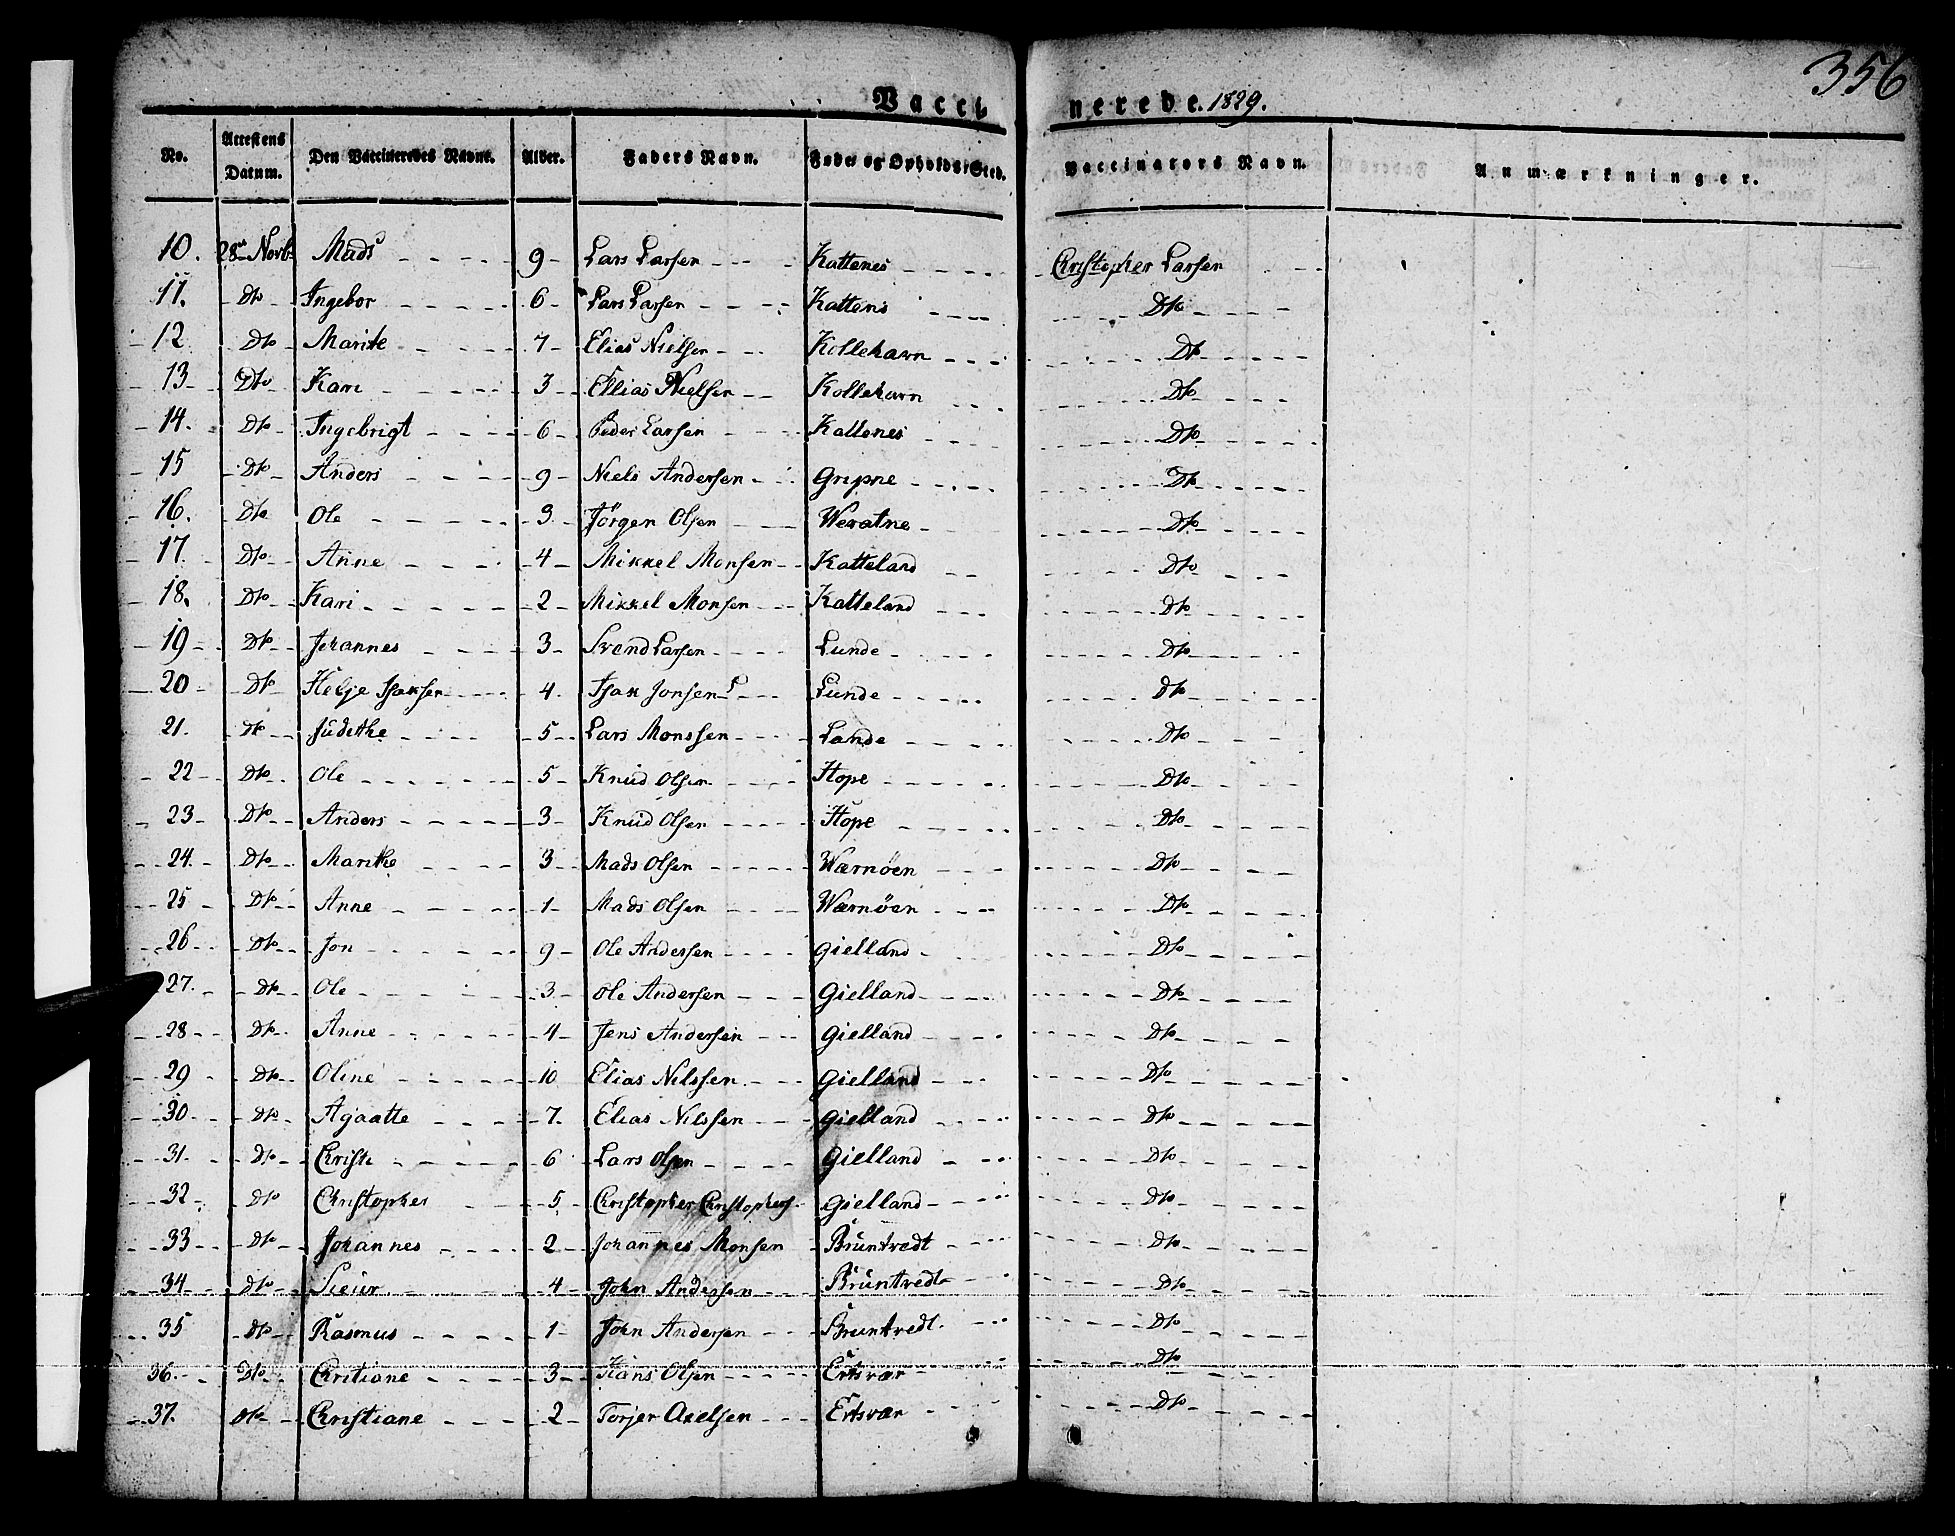 356
Vaccinerede. 1829.
No. Attestens Datum. Den Vaccineredes Navne. Alder. Faders Navn. Føde og Opholds-Sted. Vaccinators Navn. Anmærkninger.
10. 28 Novb Mads 9 Lars Larsen Kattenes Christopher Larsen
11. Do Ingebor 6 Lars Larsen Kattens Do
12 Do Marite 7 Elias Nielsen Kollehavn Do
13 Do Kari 3 Ellias Nielsen Kollehavn Do
14. Do Ingebrigt 6 Peder Larsen Kattenes Do
15 Do Anders 9 Niels Andersen Gripne Do
16. Do Ole 3 Jörgen Olsen Weratne Do
17. Do Anne 4 Mikkel Monsen Katteland Do
18. Do Kari 2 Mikkel Monsen Katteland Do
19 Do Johannes 3 Svend Larsen Lunde Do
20 Do Helje Isaksen 4. Isak Jonsen Lunde Do
21. Do Judithe 5 Lars Monssen Lande Do
22 Do Ole 5 Knud Olsen Hope Do
23 Do Anders 3 Knud Olsen Hope Do
24. Do Marithe 3 Mads Olsen Wærnöen Do
25 Do Anne 1 Mads Olsen Wærnöen Do
26 Do Jon 9 Ole Andersen Gielland Do
27. Do Ole 3 Ole Andersen Gielland Do
28 Do Anne 4 Jens Andersen Gielland Do
29 Do Oline 10 Elias Nilssen Gielland Do
30 Do Agaatte 7. Elias Nilssen Gielland Do
31. Do Christi 6 Lars Olsen Gielland Do
32 Do Christopher 5 Christopher Christophers Gielland Do
33 Do Johannes 2 Johannes Monsen Bruntvedt Do
34 Do Sieur 4 John Andersen Bruntvedt Do
35 Do Rasmus 1 John Andersen Bruntvedt. Do
36. Do Chritiane 3 Hans Olsen Ertsvær Do
37. Do Christiane 2 Torjer Axelsen Ertsvær Do